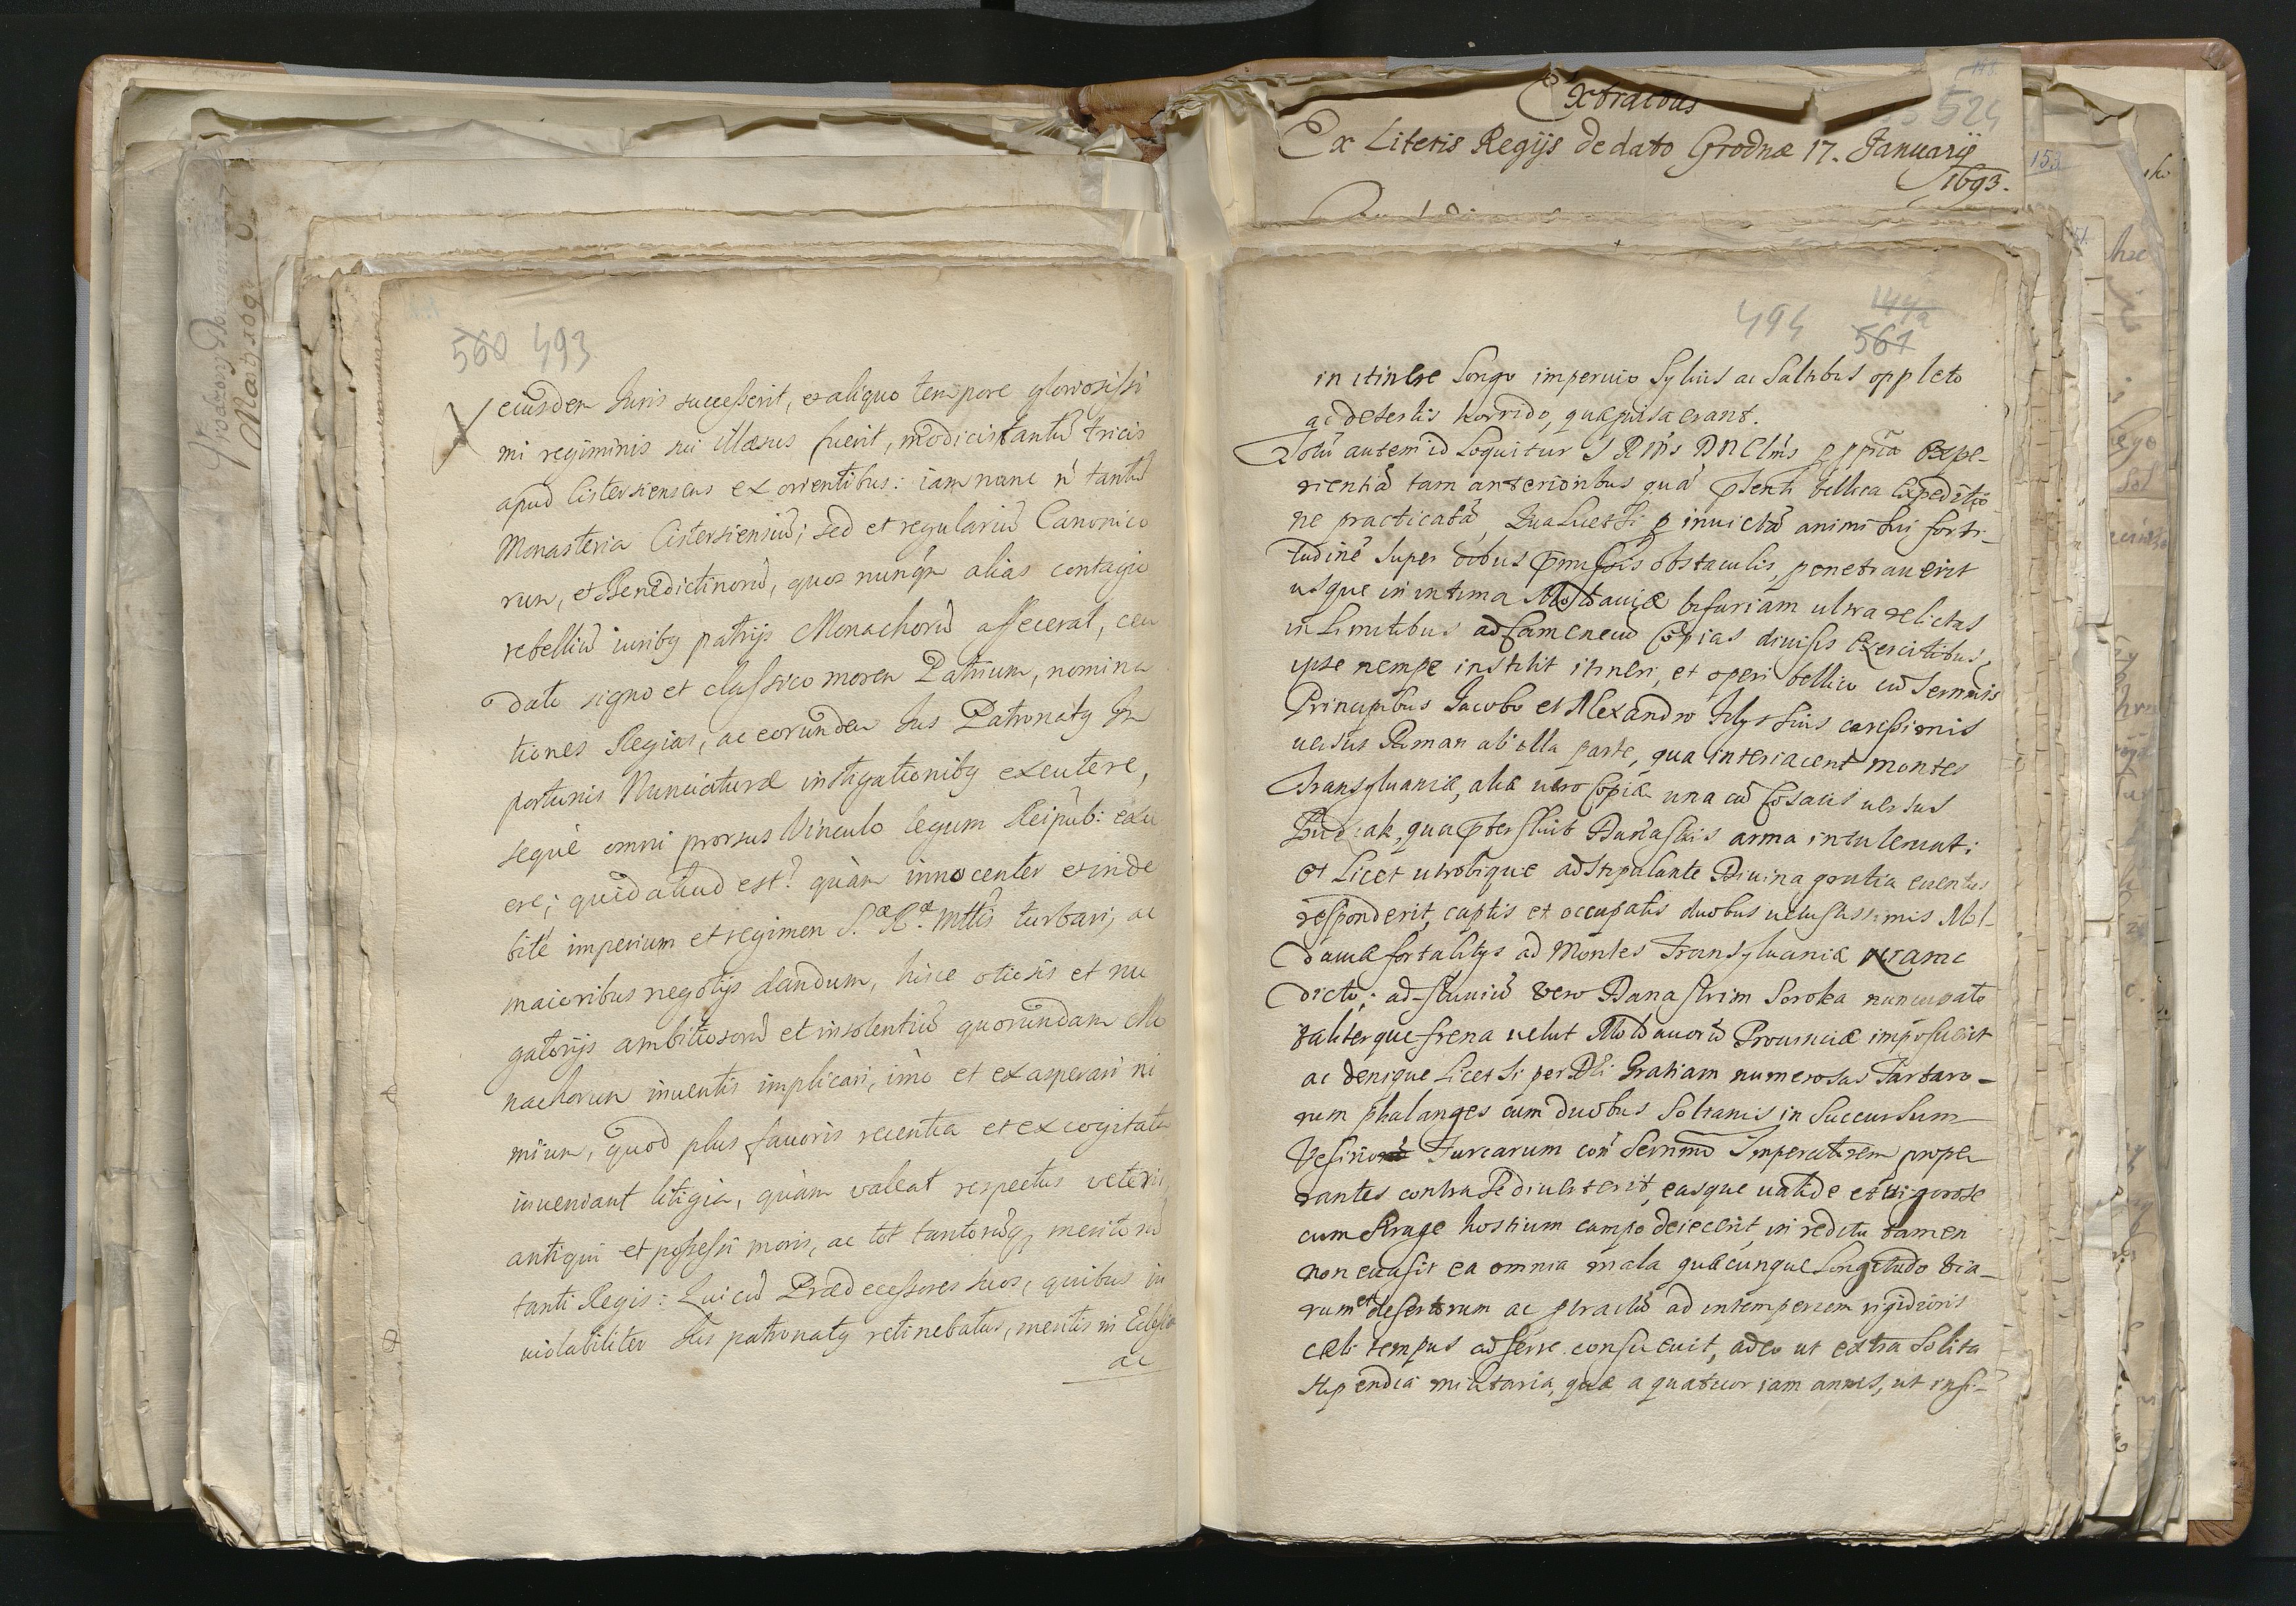 560 493
eiusdem Iuris successerit, ex aliquo tempore gloriosissi
mi regiminis sui illæsus fuerit, modicis tantũ tricis
apud Cistersienses ex orientibus: iam nunc ñ tantũ
Monasteria Cistersiensiũ; sed et regulariũ Canonico
rum, et Benedictinorũ, quos nunqm alias contagio
rebelliũ iuribq patrijs Monachorũ affecerat, ceu
dato signo et classico morem Patrium, nomina
tiones Regias, ac eorundem Ius Patronatq Im
portunis Nunciaturæ instigationibq excutere,
seque omni prorsus Vinculo legum Reipub: exu
ere; quid aliud est? quàm innocenter et inde
bitè imperium et regimen S.æ R.æ Mttis turbari, ac
maioribus negotijs dandum, hisce otiosis et nu
gatorijs ambitiosorũ et insolentiũ quorundam Mo
nachorum inventis implicari, imo et exasperari ni
mium, quod plus favoris recentia et excogitata
inveniant litigia, quàm valeat respectus veteris,
antiqui et possessi moris, ac tot tantorũq, meritorũ
tanti Regis: Qui cũ Prædecessores suos, quibus in
violabiliter Ius patronatq retinebatur, meritis in Ecclesia
ac
Extractus
Ex Literis Regijs de dato Grodnæ 17. Januarij
1693.
524
494 144a
561
in itinere longo impervio Sylvis ac Saltibus oppleto
ac desertis horrido, quæ passa erant.
Totũ autem id loquitur
rientiã tam anterioribus quã pñti bellica Expeditio
ne practicatã, qualiter Si p invictã animi sui forti-
tudinẽ super oibus pmissis obstaculis, penetraverit
usque in intima Moldaviæ bifariam ultra relictas
in limitibus ad Camenecũ Copias divisis Exercitibus,
ipse nempe institit itineri, et operi bellico cũ Sermis
Principibus Iacobo et Alexandro filys suis carissimis
versus Roman ab illa parte, qua interiacent montes
Transylvaniæ, aliæ vero Copiæ una cũ Cosacis versus
Budziak, qua pterfluit Danastris arma intulerunt;
et licet utrobique adstipulante Divina gratia eventus
responderit, captis et occupatis duobus vetustissimis Mol-
daviæ fortalitys ad Montes Transylvaniæ Niamc
dicto; ad fluviũ vero Danastrim Soroka nuncupato
taliterque frena velut Moldavorũ Provinciæ imposuerit
ac denique licet Si per Dei Gratiam numerosas Tartaro-
rum phalanges cum duobus Soltanis in Succursum
Vesirio Turcarum con Sernmo Imperatorem prope
rantes contra Se diverterit, easque valide et vigorose
cum strage hostium campo deiecerit, in reditu tamen
non evasit ea omnia mala quæcunque longitudo via-
rum et desertorum ac tractũ ad intemperiem rigidioris
cæli tempus adferre consuevit, adeo ut extra solita
stipendia militaria, quæ a quatuor iam annis, ut insi-